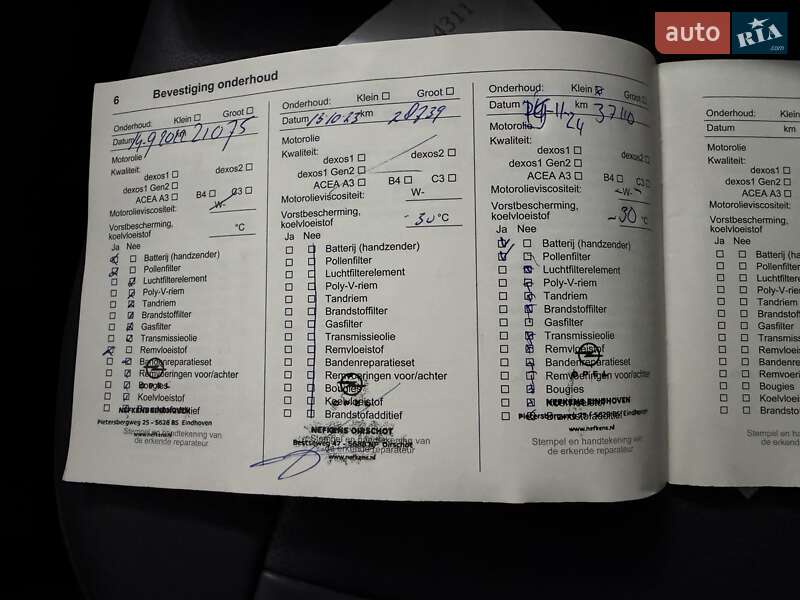 4311
auto RIA.com
6 Bevestiging onderhoud
Onderhoud: Klein Groot
Datum 14.9 21075
Motorolie
Kwaliteit:
dexos1 dexos2
dexos1 Gen2
ACEA A3 B4 C3
Motorolieviscositeit: W-
Vorstbescherming,
koelvloeistof °C
Ja Nee
Batterij (handzender)
Pollenfilter
Luchtfilterelement
Poly-V-riem
Tandriem
Brandstoffilter
Gasfilter
Transmissieolie
Remvloeistof
Bandenreparatieset
Remvoeringen voor/achter
Bougies
OPEL
Koelvloeistof
Brandstofadditief
NEFKENS EINDHOVEN
Pietersbergweg 25 - 5628 BS Eindhoven
www.nefkens.nl
Stempel en handtekening van
de erkende reparateur
Onderhoud: Klein Groot
Datum 15 10 23 km 28739
Motorolie
Kwaliteit:
dexos1 dexos2
dexos1 Gen2
ACEA A3 B4 C3
Motorolieviscositeit: W-
Vorstbescherming,
koelvloeistof -30 °C
Ja Nee
Batterij (handzender)
Pollenfilter
Luchtfilterelement
Poly-V-riem
Tandriem
Brandstoffilter
Gasfilter
Transmissieolie
Remvloeistof
Bandenreparatieset
Remvoeringen voor/achter
Bougies
OPEL
Koelvloeistof
Brandstofadditief
NEFKENS OIRSCHOT
Stempel en handtekening van
Oirschot
de erkende reparateur
www.nefkens.nl
Onderhoud: Klein Groot
Datum 11-24 km 37110
Motorolie
Kwaliteit:
dexos1 dexos2
dexos1 Gen2
ACEA A3 B4 C3
Motorolieviscositeit: -W-
Vorstbescherming,
koelvloeistof -30 °C
Ja Nee
Batterij (handzender)
Pollenfilter
Luchtfilterelement
Poly-V-riem
Tandriem
Brandstoffilter
Gasfilter
Transmissieolie
Remvloeistof
Bandenreparatieset
OPEL
Remvoeringen voor/achter
Bougies
Koelvloeistof
NEFKENS EINDHOVEN
Brandstofadditief
Pietersbergweg 25 - 5628 BS Eindhoven
www.nefkens.nl
Stempel en handtekening van
de erkende reparateur
Onderhoud: Klein
Datum km
Motorolie
Kwaliteit:
dexos1
dexos1 Gen2
ACEA A3
Motorolieviscositeit:
Vorstbescherming,
koelvloeistof
Ja Nee
Batterij (han
Pollenfilter
Luchtfilterele
Poly-V-riem
Tandriem
Brandstoffilt
Gasfilter
Transmissie
Remvloeisto
Bandenrepa
Remvoering
Bougies
Koelvloeisto
Brandstofad
Stempel en handte
de erkende re